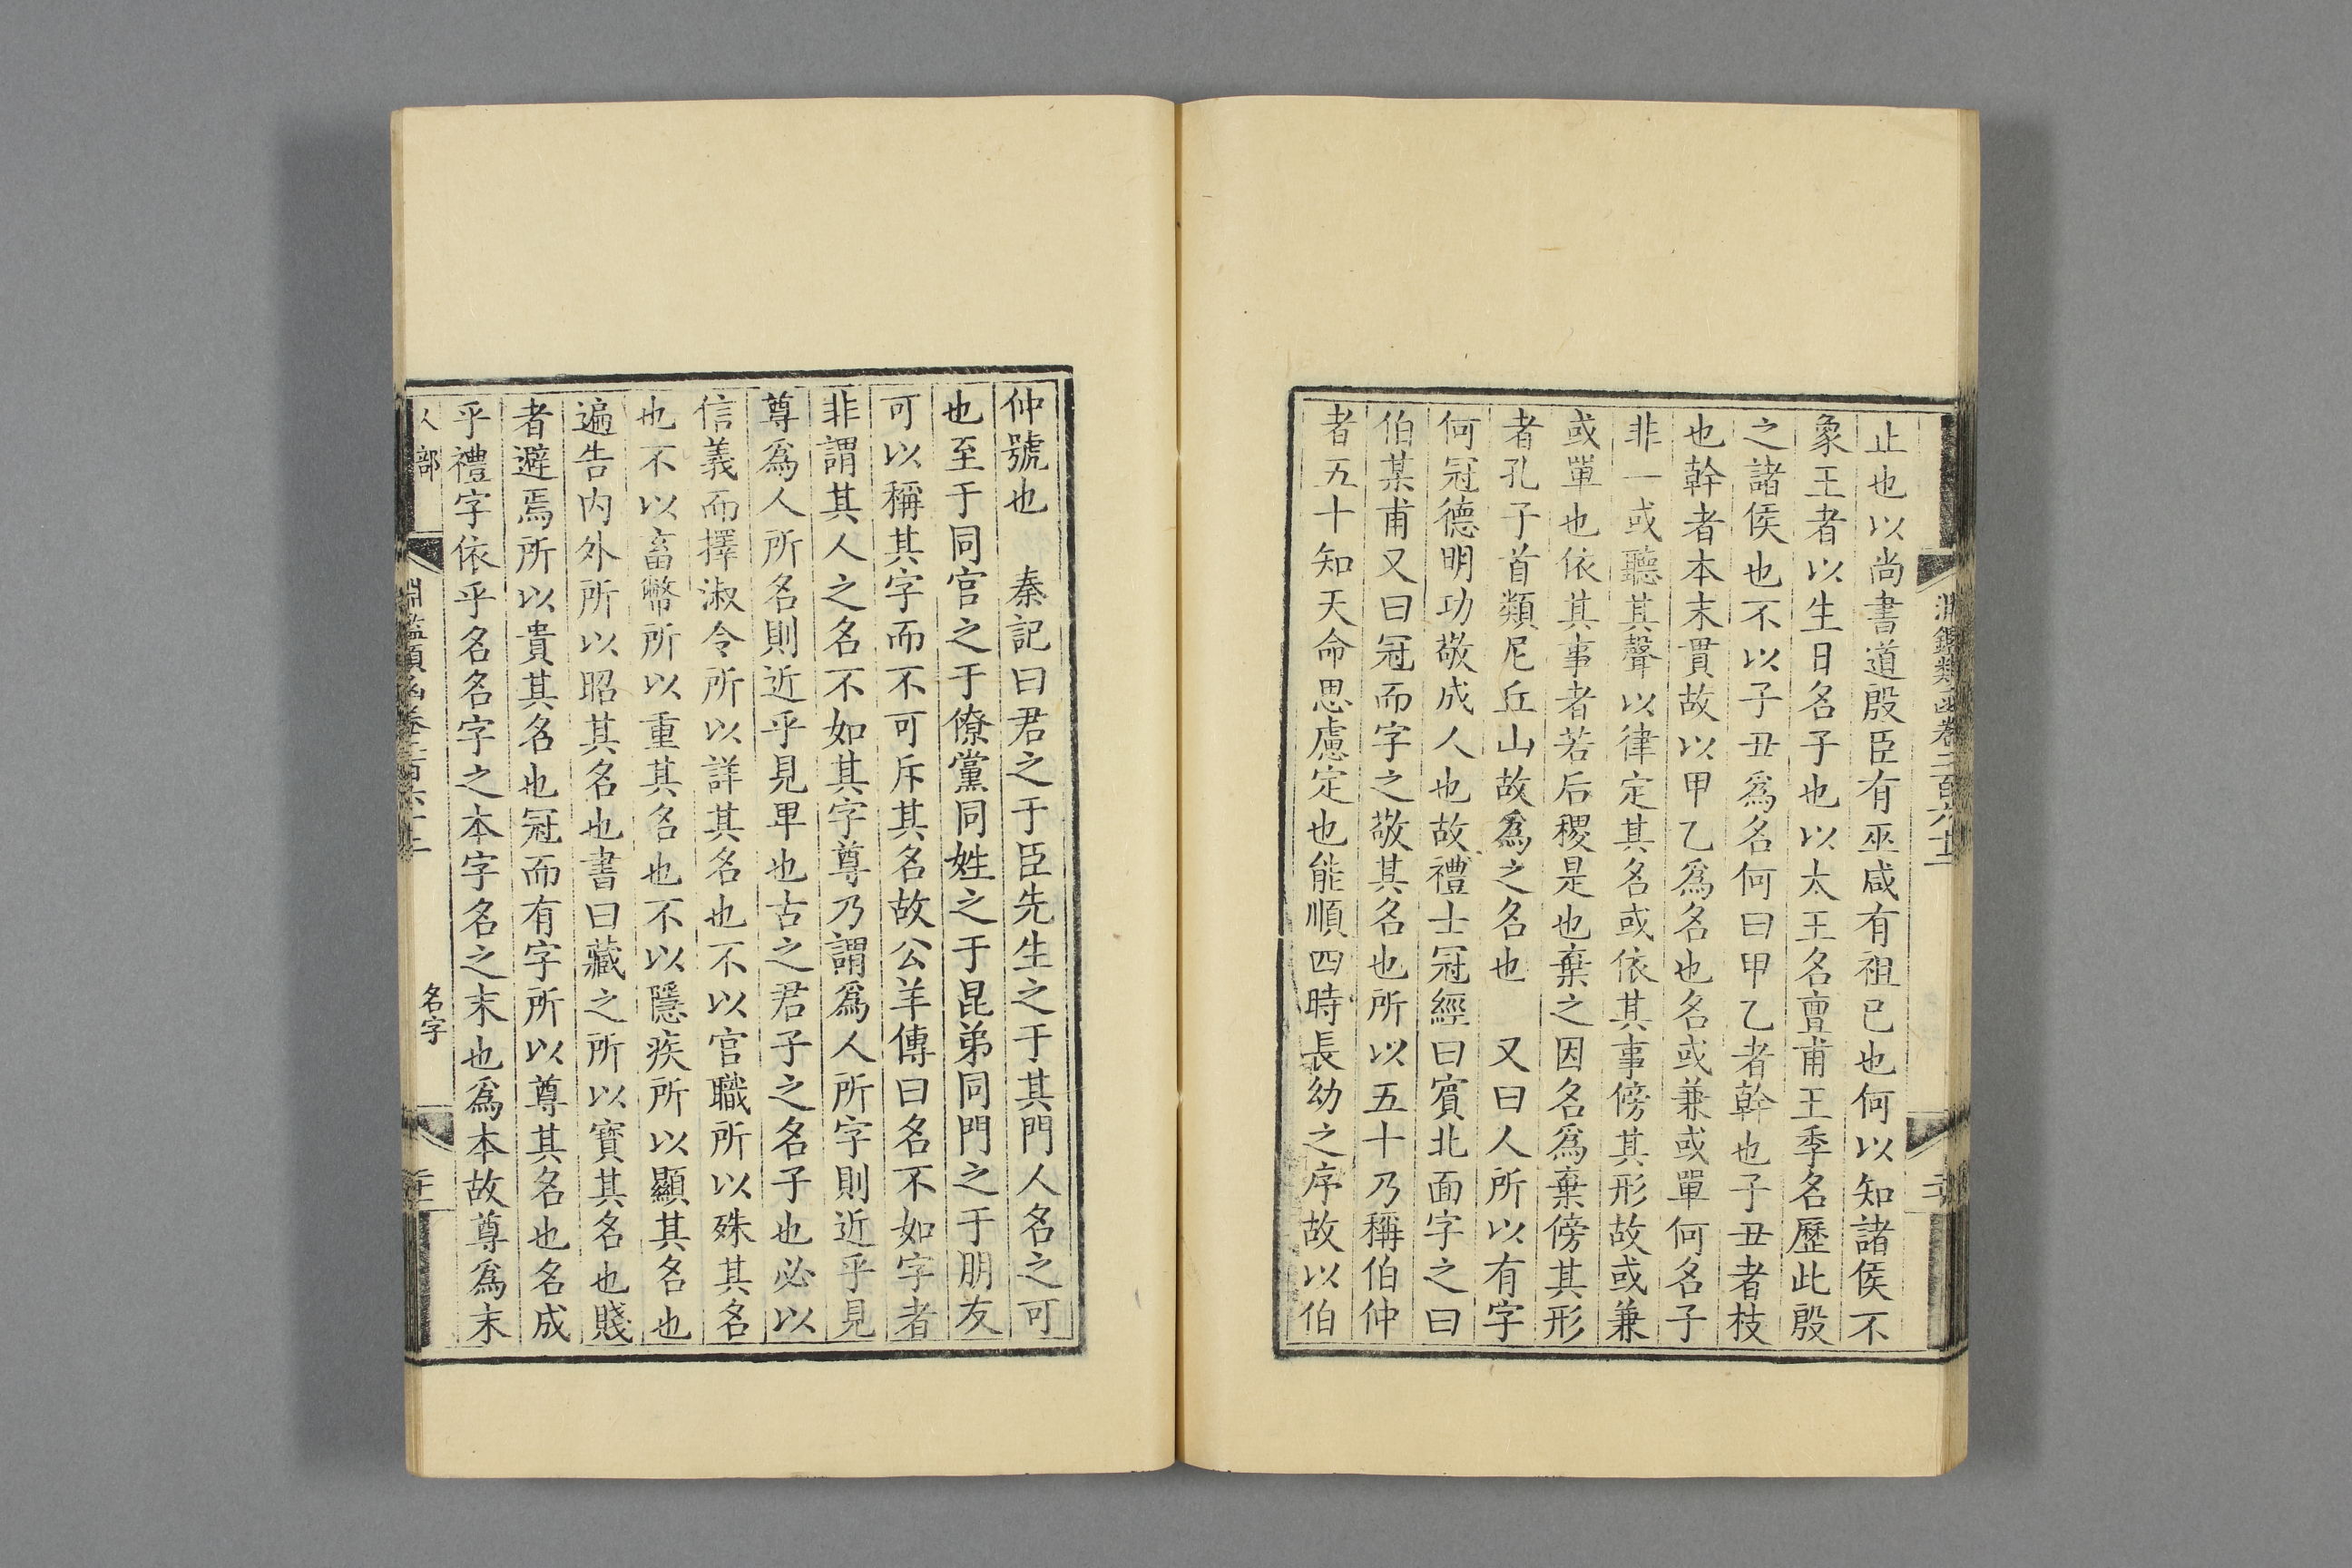 淵鑑類函卷二百六十二
止也以尚書道殷臣有巫咸有祖已也何以知諸侯不
象王者以生日名子也以太王名亶甫王季名歷此殷
之諸侯也不以子丑爲名何曰甲乙者幹也子丑者枝
也幹者本末貫故以甲乙爲名也名或兼或單何名子
非一或聽其聲以律定其名或依其事傍其形故或兼
或單也依其事者若后稷是也棄之因名爲棄傍其形
者孔子首類尼丘山故爲之名也　又曰人所以有字
何冠德明功敬成人也故禮士冠經曰賓北面字之曰
伯某甫又曰冠而字之敬其名也所以五十乃稱伯仲
者五十知天命思慮定也能順四時長幼之序故以伯
仲號也　秦記曰君之于臣先生之于其門人名之可
也至于同官之于僚黨同姓之于昆弟同門之于朋友
可以稱其字而不可斥其名故公羊傳曰名不如字者
非謂其人之名不如其字尊乃謂爲人所字則近乎見
尊爲人所名則近乎見卑也古之君子之名子也必以
信義而擇淑令所以詳其名也不以官職所以殊其名
也不以畜幣所以重其名也不以隱疾所以顯其名也
遍告内外所以昭其名也書曰藏之所以寳其名也賤
者避焉所以貴其名也冠而有字所以尊其名也名成
乎禮字依乎名名字之本字名之末也爲本故尊爲末
人部　淵鑑類函卷二百六十二　名字